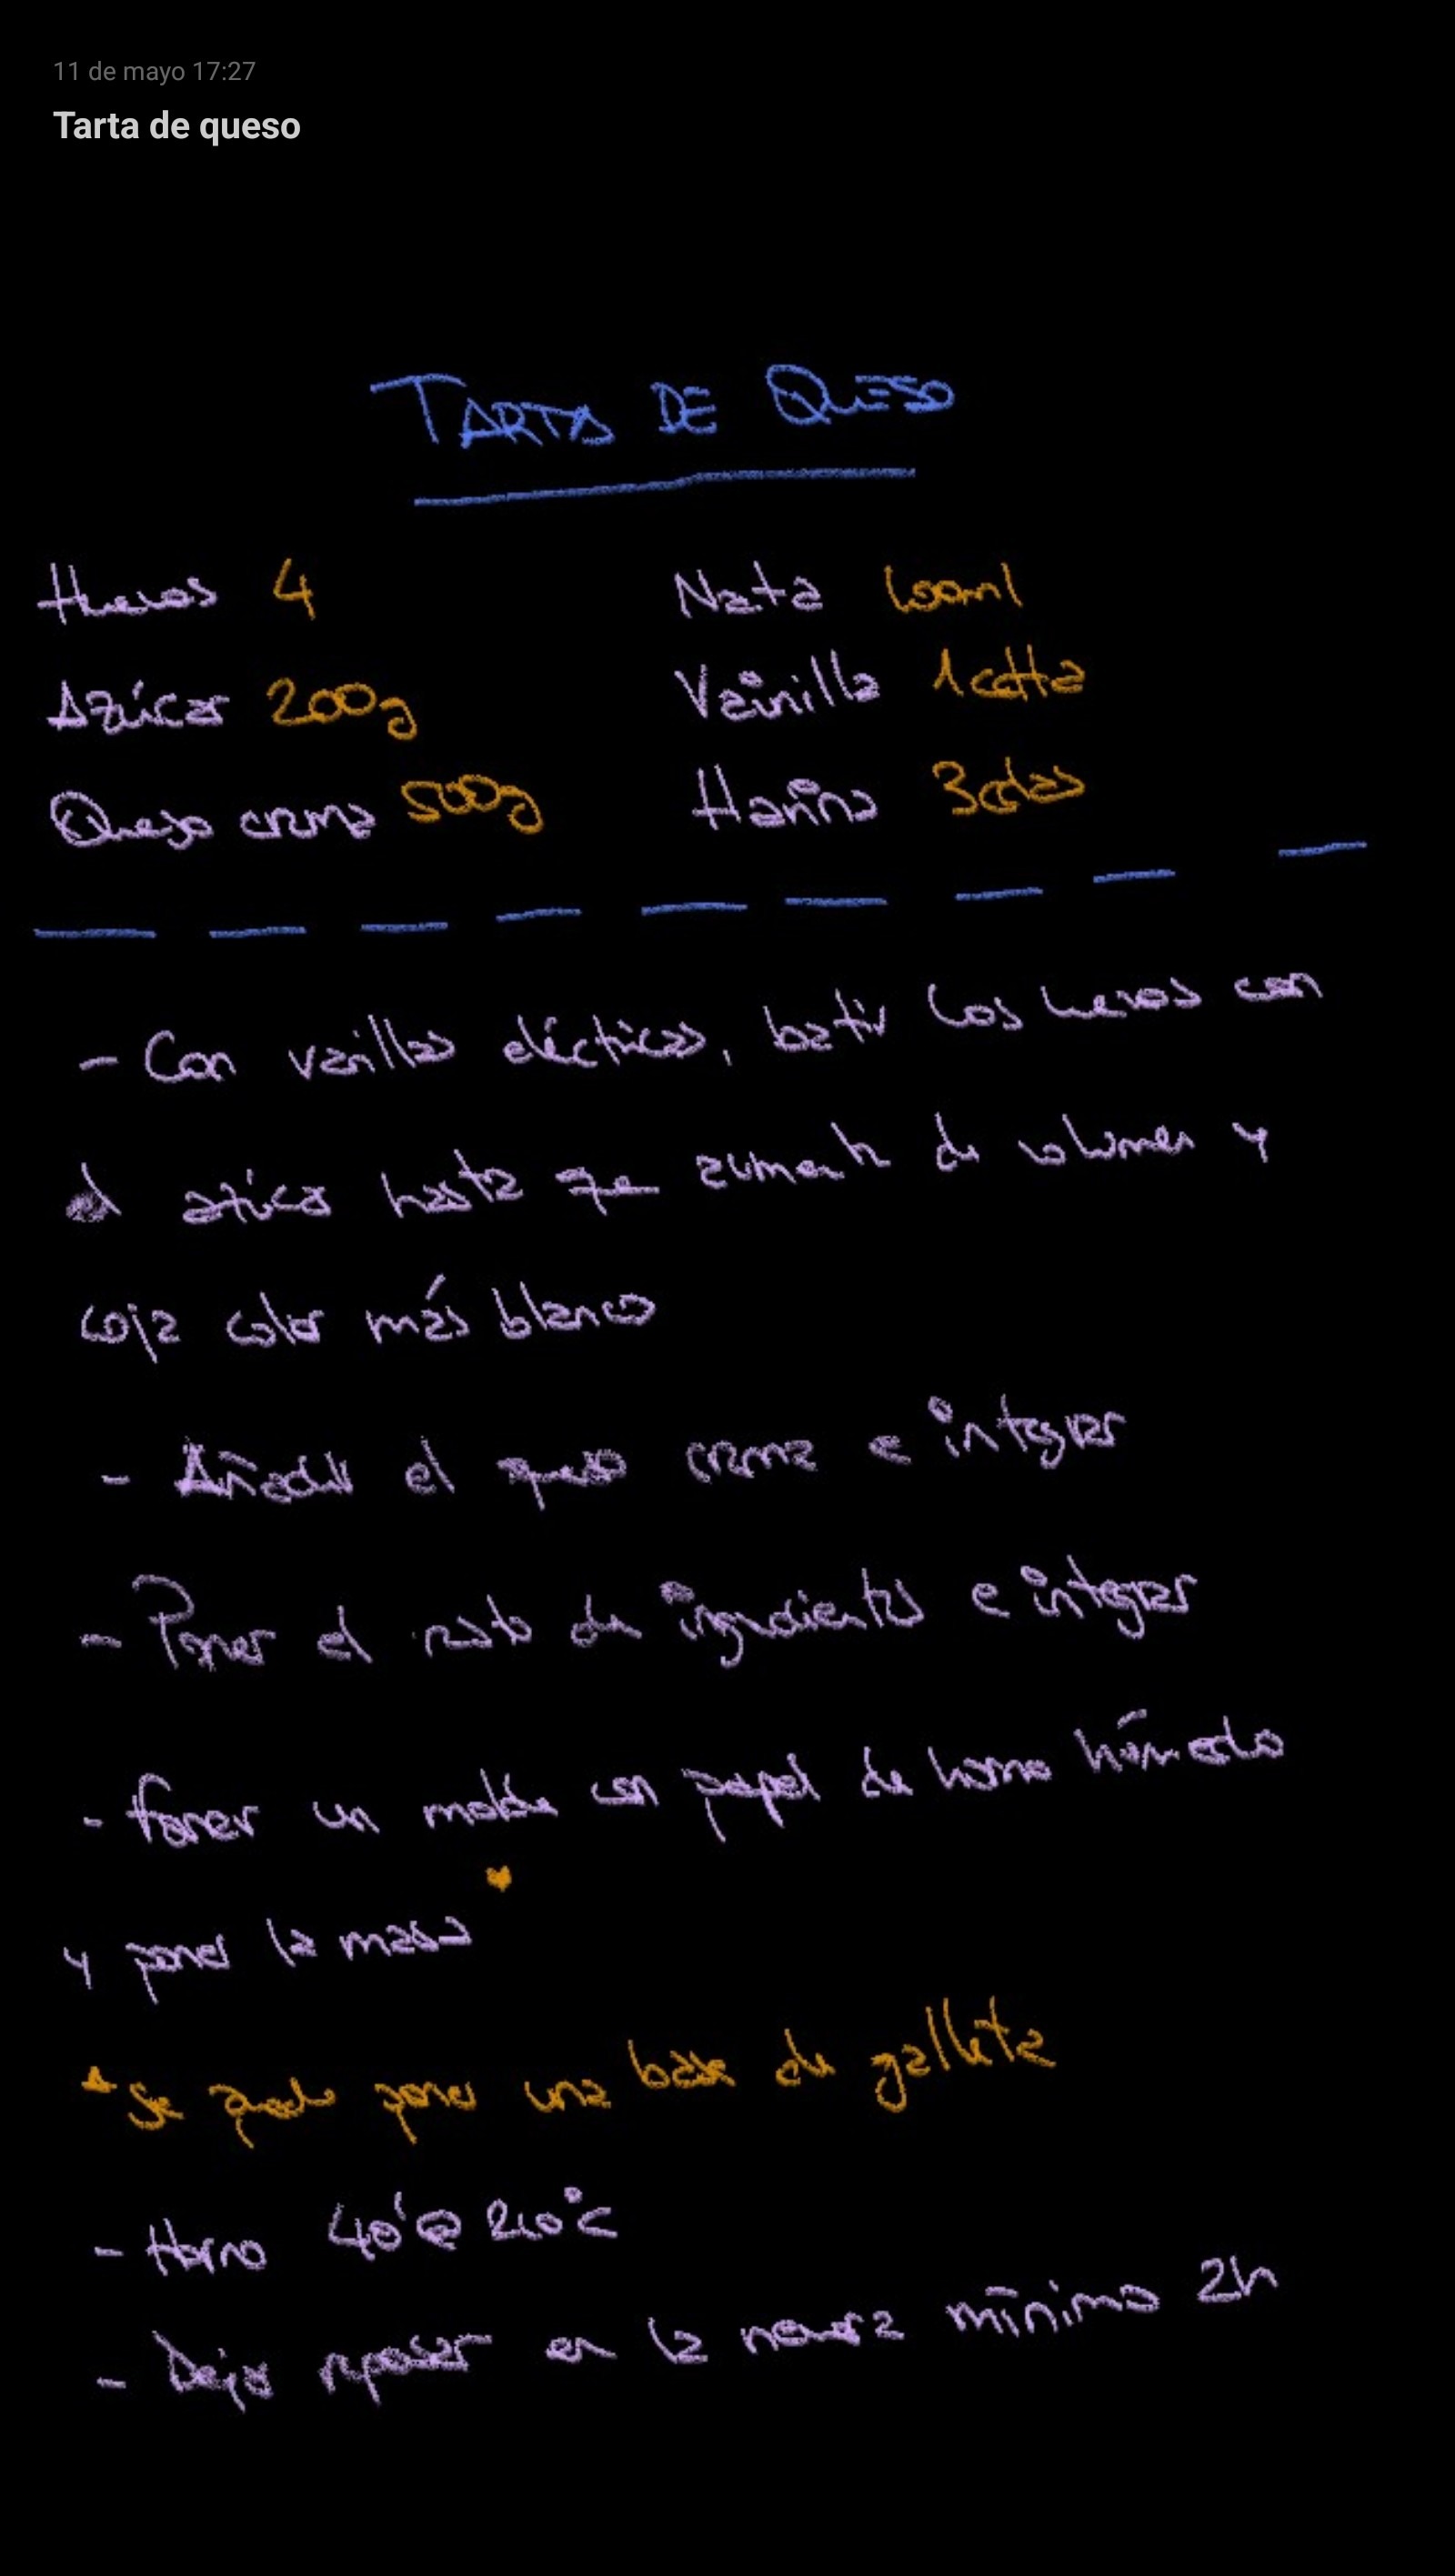 11 de mayo 17:27
Tarta de queso
TARTA DE QUESO
Huevos 4
Nata
Azúcar 200g
Vainilla 1cdta
Queso crema 500g
Harina 3cdas
- Con varillas eléctricas, batir los huevos con
el azúcar hasta que aumente de volumen y
coja color más blanco
- Añadir el queso crema e integrar
- Poner el resto de ingredientes e integrar
- forrar un molde con papel de horno húmedo
y poner la masa *
* Se puede poner una base de galleta
- Horno 40' @ 210°C
- Dejar reposar en la nevera mínimo 2h